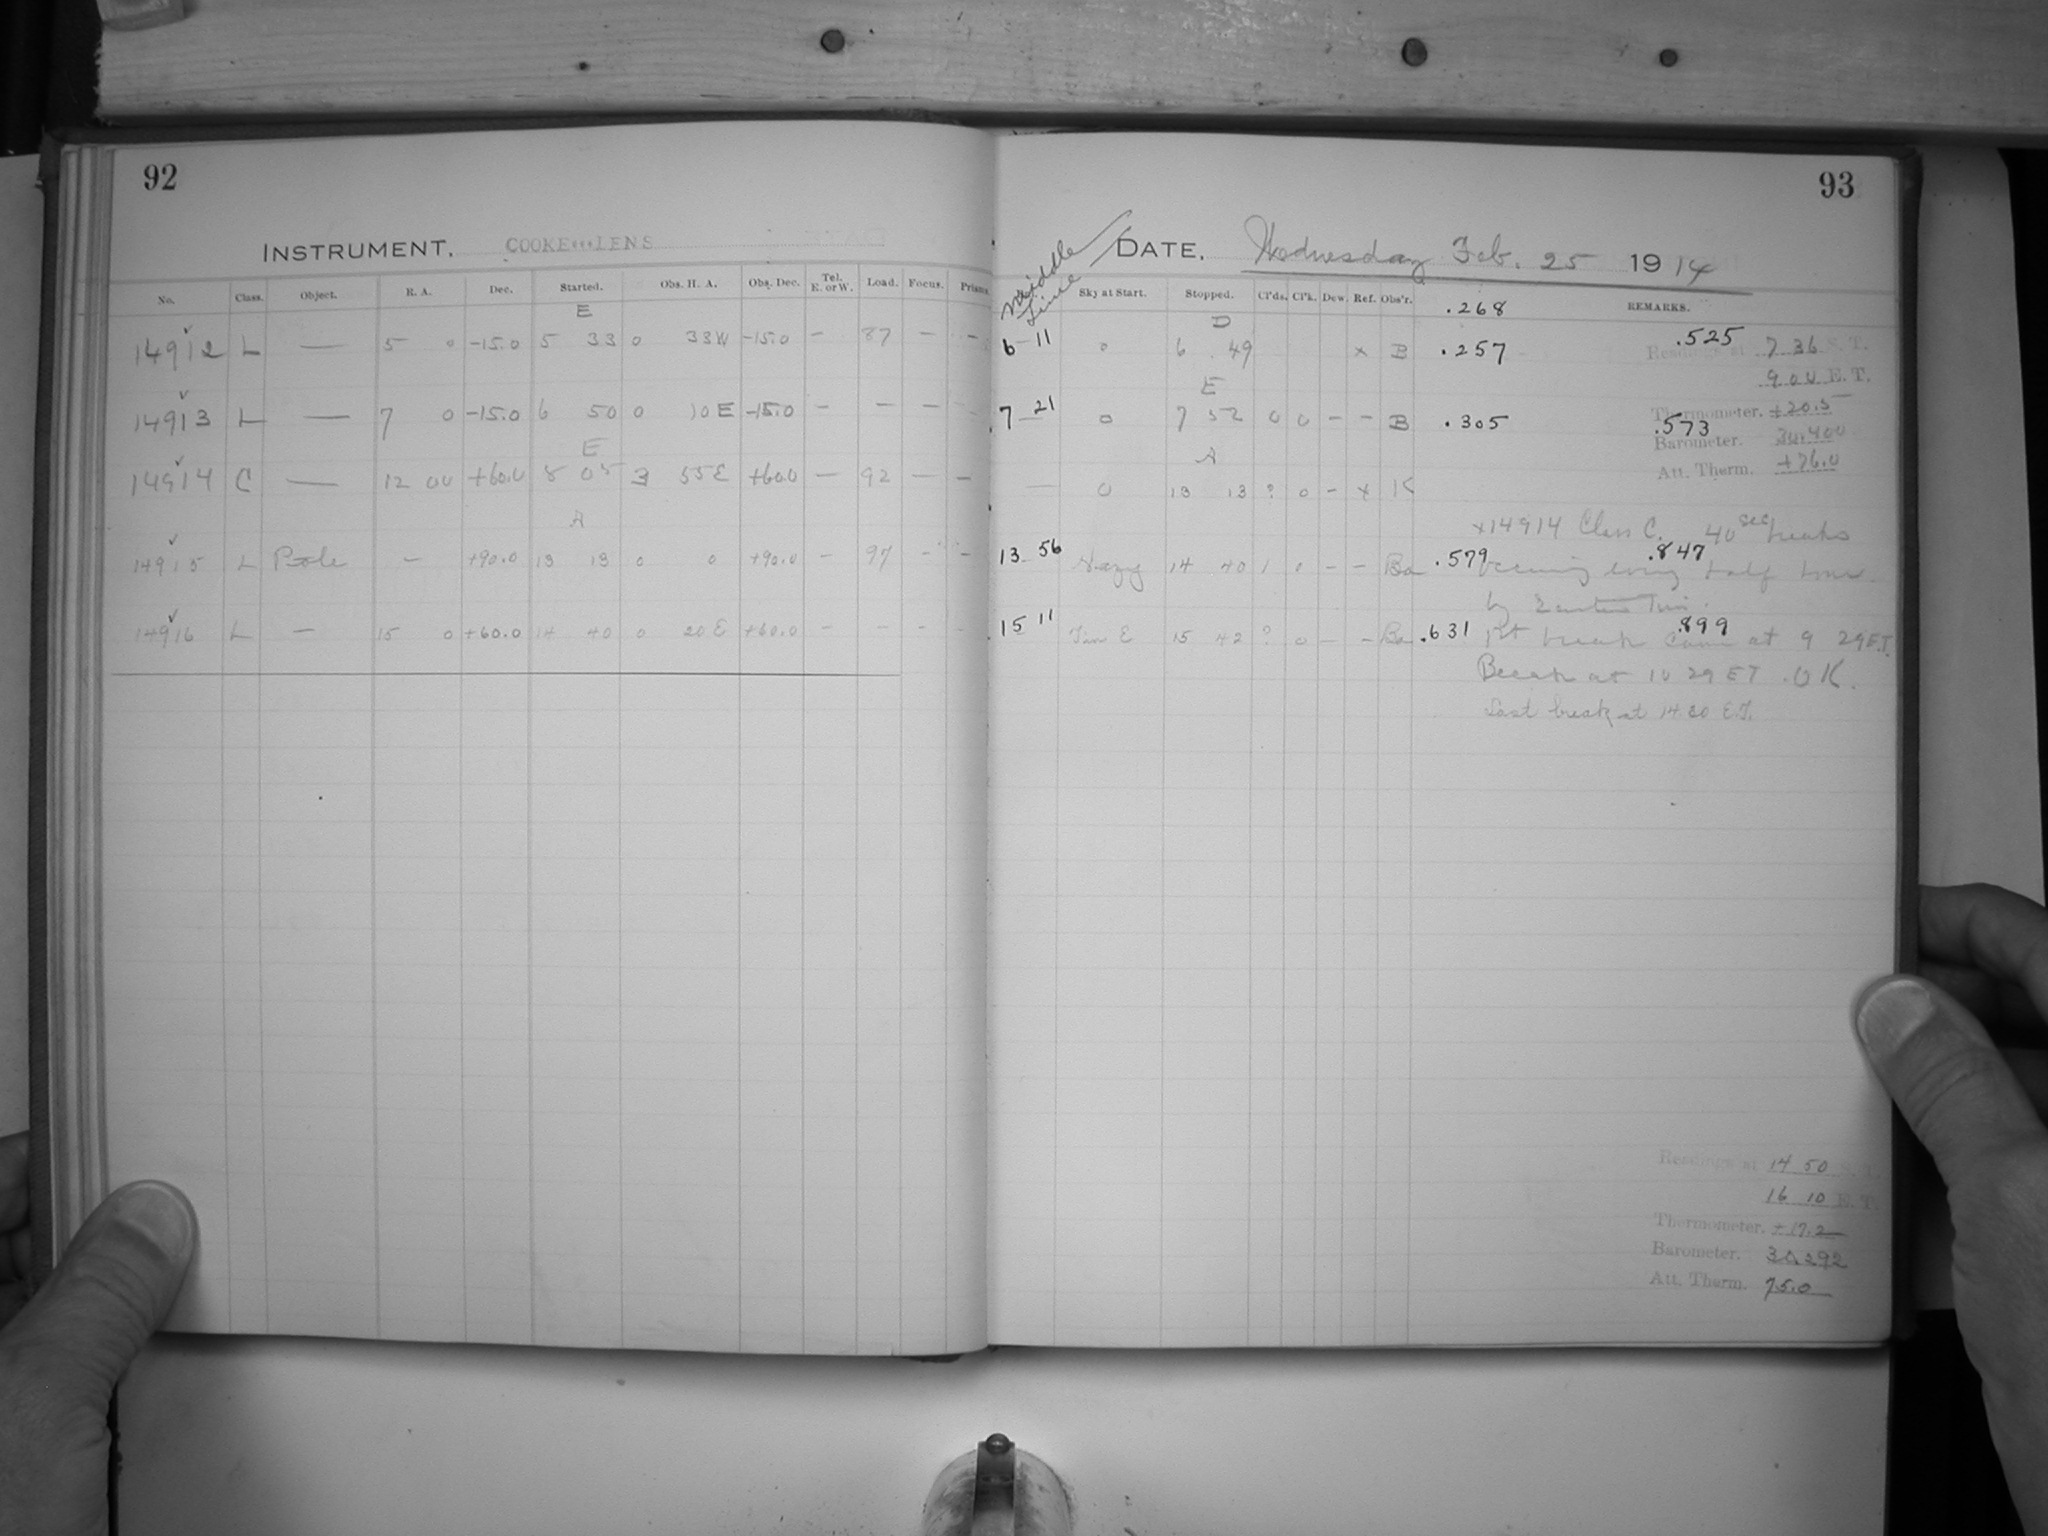 92
INSTRUMENT. COOKE LENS
No. Class. Object. R. A. Dec. Started. Obs. H. A. Obs. Dec. Tel. E. or W. Load. Focus. Prisms
E
14912 L — 5 0 -15.0 5 33 0 33W -15.0 - 87 - -
14913 L — 7 0 -15.0 6 50 0 10E -15.0 - - - -
E
14914 C — 12 00 +60.0 8 05 3 55E +60.0 - 92 - -
A
14915 L Pole - +90.0 13 13 0 0 +90.0 - 97 - -
14916 L - 15 0 +60.0 14 40 0 20E +60.0 - - - -
93
Middle Time
DATE. Wednesday Feb. 25 1914
Sky at Start. Stopped. Cl'ds. Cl'k. Dew. Ref. Obs'r. REMARKS.
.268
D
6 11 0 6 49 x B .257 .525
Readings at 7 36 S. T.
9 00 E. T.
E
7 21 0 7 52 0 0 - - B .305 .573
Thermometer. +20.5
Barometer. 30.400
Att. Therm. +76.0
A
— 0 13 13 ? 0 - x K
x14914 Class C. 40 sec breaks
13 56 Hazy 14 40 1 0 - - Ba .579 .847
occuring every half hour
by Eastern Time.
15 11 Tin E 15 42 ? 0 - - Ba .631 .899
1st break came at 9 29 E.T.
Break at 10 29 ET . OK.
Last break at 14 30 E.T.
Readings at 14 50 S. T.
16 10 E. T.
Thermometer. +17.2
Barometer. 30.292
Att. Therm. 75.0